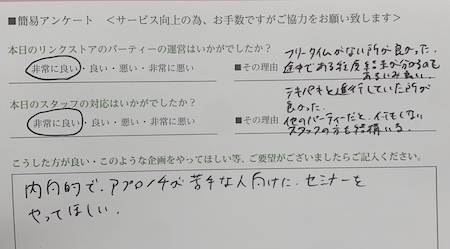 ■簡易アンケート <サービス向上の為、お手数ですがご協力をお願い致します>
本日のリンクストアのパーティーの運営はいかがでしたか?
非常に良い・良い・悪い・非常に悪い
■その理由
フリータイムがない所が良かった。
途中である程度結果が分かるのも
ある
本日のスタッフの対応はいかがでしたか?
非常に良い・良い・悪い・非常に悪い
■その理由
テキパキと進行していた所が
良かった。
他のパーティーだと、イマイチな
スタッフの方も結構いる。
こうした方が良い・このような企画をやってほしい等、ご要望がございましたらご記入ください。
内向的で、アプローチが苦手な人向けに、セミナーを
やってほしい。